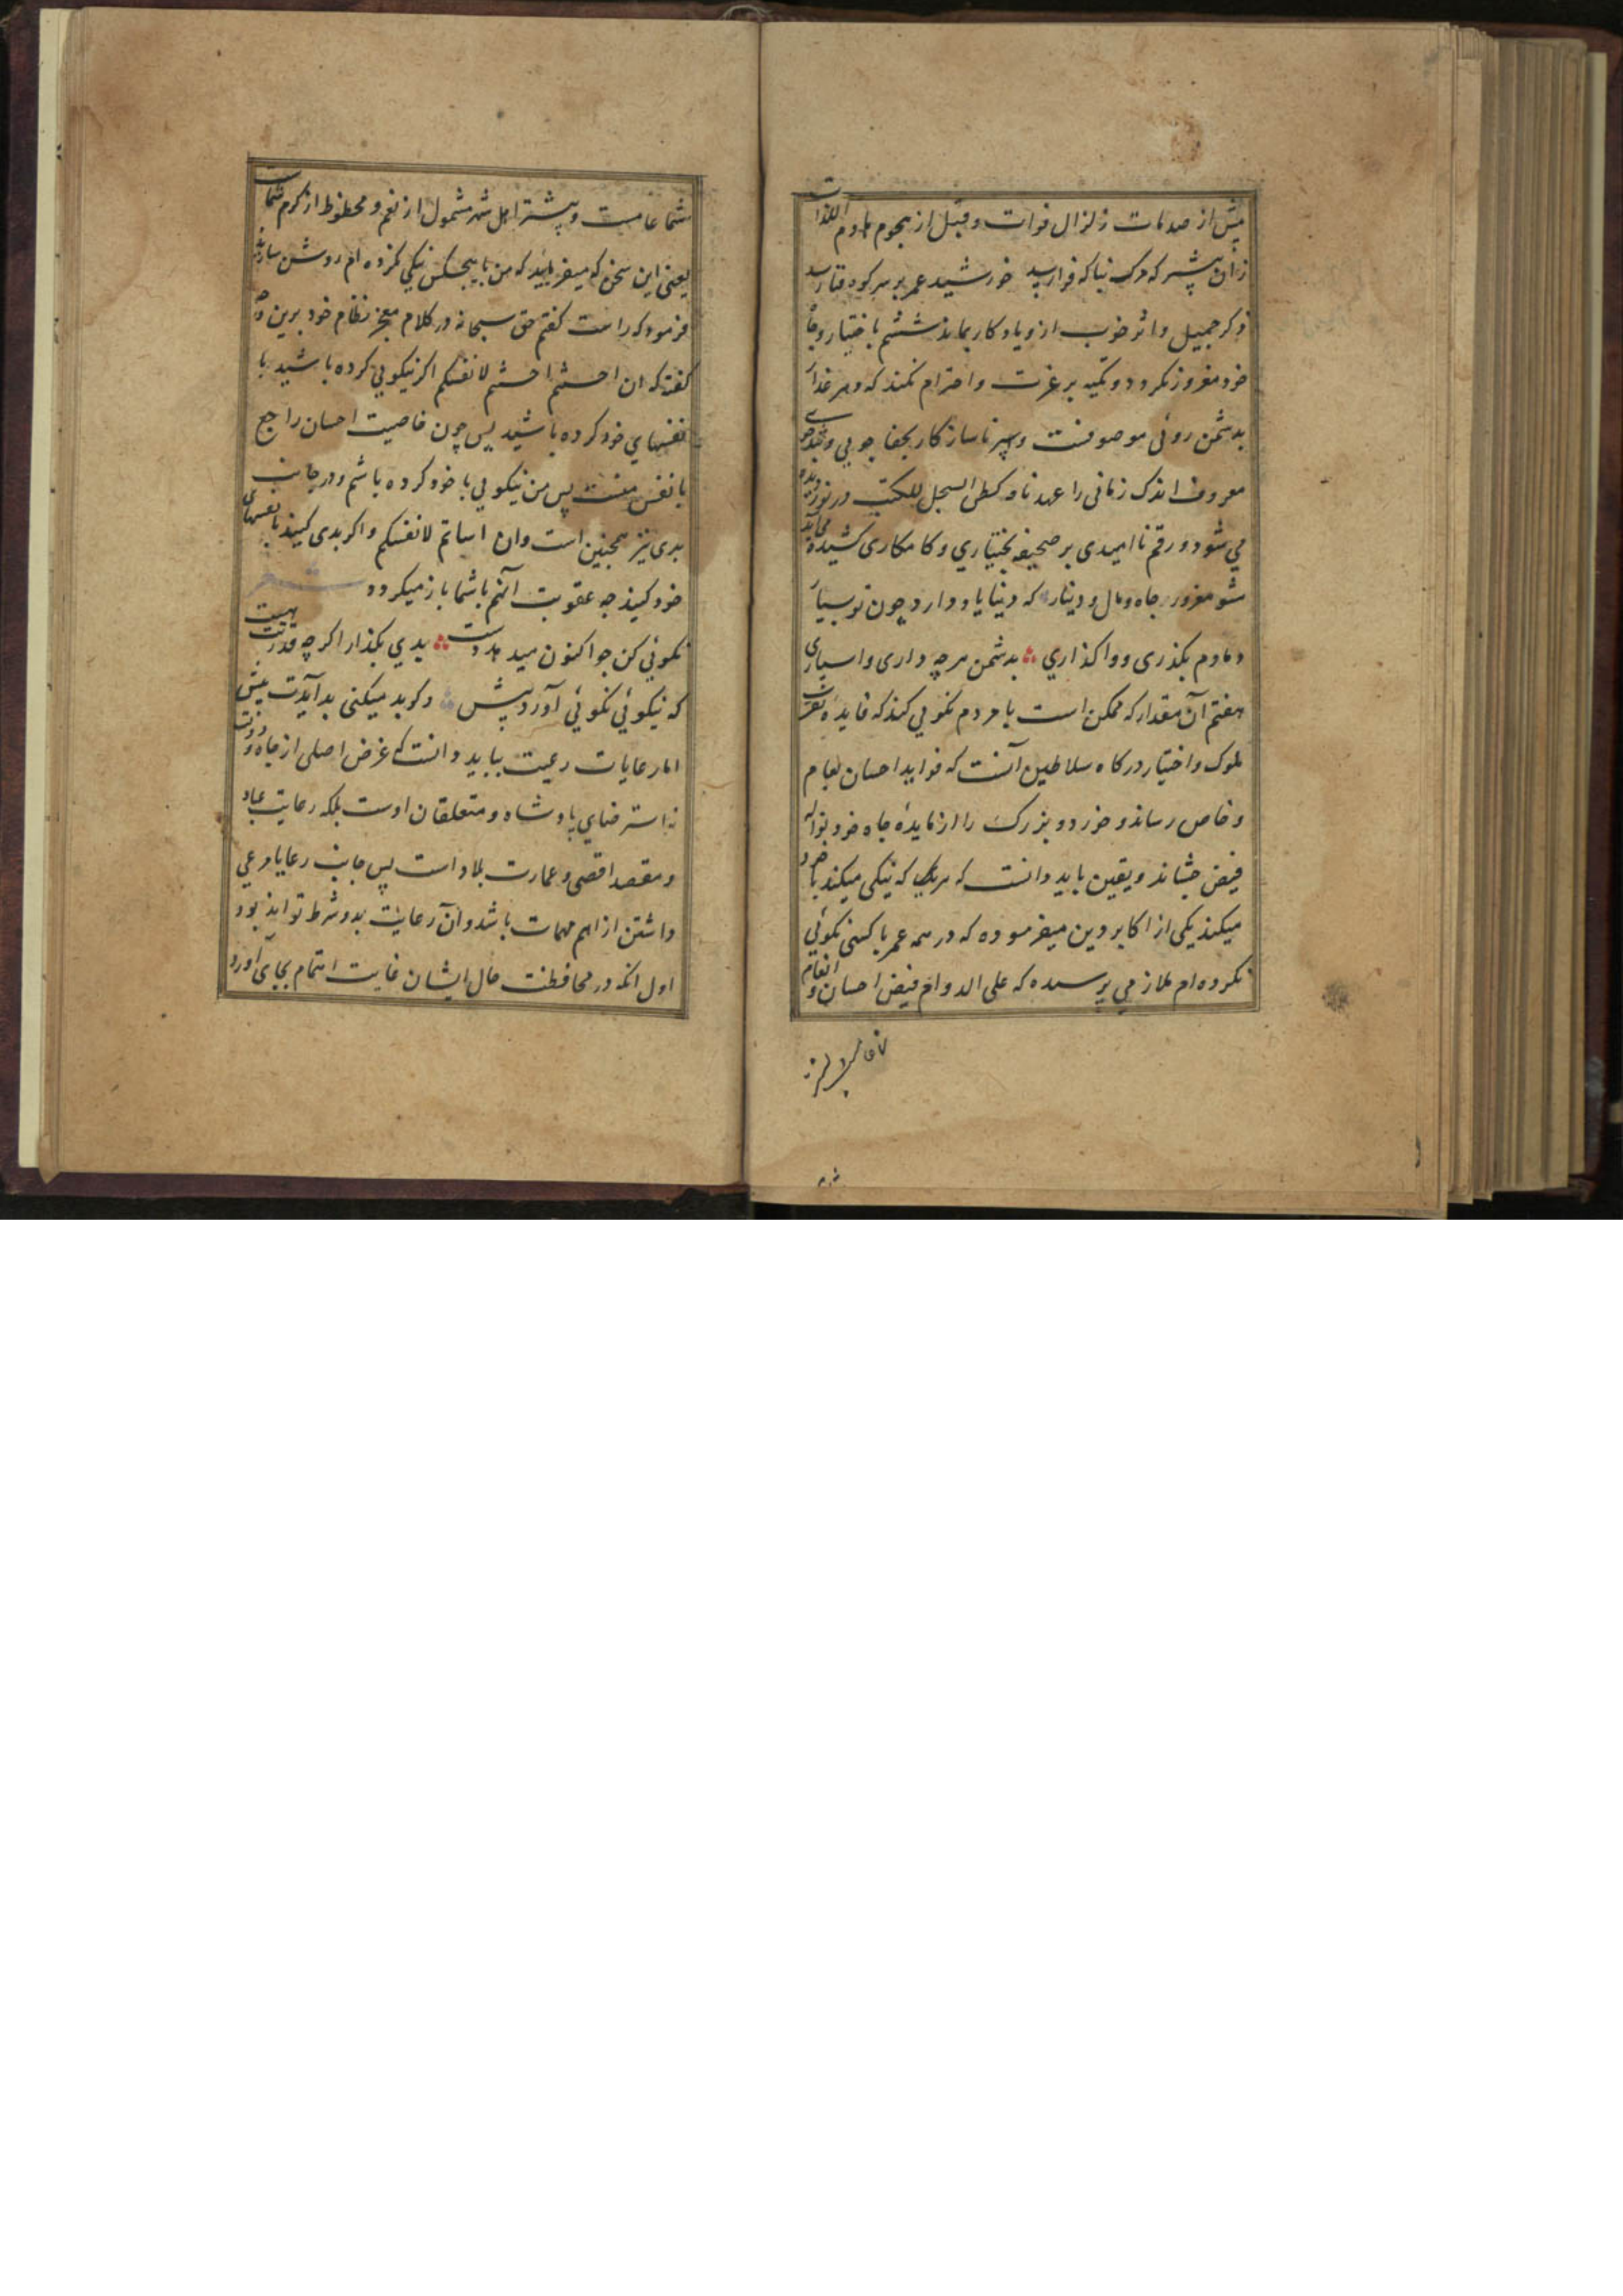 پیش از صدمات زلزال فوات و قبل از هجوم هادم اللذات
زان پیشتر که مرک نباکه فرارسد خورشید عمر بر سر کوه فنا رسد
ذکر جمیل و اثر خوب ازو یادکار بماند ششم باختیار و جاه
خود مغرور نکردد و تکیه بر عزت و احترام نکند که دهر غدار
بدشمن روئی موصوفست و سپهر ناسازکار بجفا جویی و
معروف اندک زمانی را عهدنامه کطی السجل للکتب در نوردیده
می شود و رقم ناامیدی بر صحیفه بختیاری و کامکاری کشیده می آید
مشو مغرور جاه و مال و دینار که دنیا یاد دارد چون تو بسیار
دمادم بکذری و واکذاری بدشمن هر چه داری و اسپاری
هفتم آن مقدار که ممکن است با مردم نکویی کند که فایده تقرب
ملوک و اختیار درکاه سلاطین آنست که فواید احسان بعام
و خاص رساند و خورد و بزرک را از مایدهٔ جاه خود نواله
فیض چشاند و یقین باید دانست که هریک که نیکی میکند با خود
میکند یکی از اکابر دین میفرموده که در همه عمر با کسی نکوئی
نکرده ام ملازمی پرسیده که علی الدوام فیض احسان و انعام
شما عامست و بیشتر اهل شهر مشمول از نعم و محظوظ از کرم شمااند
معنی این سخن که میفرمایید که من با هیچکس نیکی نکرده ام روشن سازید
فرمود که راست کفتم حق سبحانه در کلام معجز نظام خود برین وجه
کفته که ان احسنتم احسنتم لانفسکم اکر نیکویی کرده باشید با
نفسهای خود کرده باشید پس چون خاصیت احسان راجع
با نفس منست پس من نیکویی با خود کرده باشم و در جانب
بدی نیز همچنین است و ان اسأتم لانفسکم و اکر بدی کنید با نفسهای
خود کنید چه عقوبت آنهم باشما باز میکردد
نکوئی کن چو اکنون میدهد دست بدی بکذار اکر چه قدرتت هست
که نیکوئی نکوئی آورد پیش وکر بد میکنی بد آیدت پیش
اما رعایات رعیت بباید دانست که غرض اصلی از جاه و دولت
نه استرضای پادشاه و متعلقان اوست بلکه رعایت عباد
و مقصد اقصی و عمارت بلاد است پس جانب رعایا مرعی
داشتن از اهم مهمات باشد و آن رعایت بدو شرط تواند بود
اول انکه در محافظت حال ایشان غایت اهتمام بجای آورد